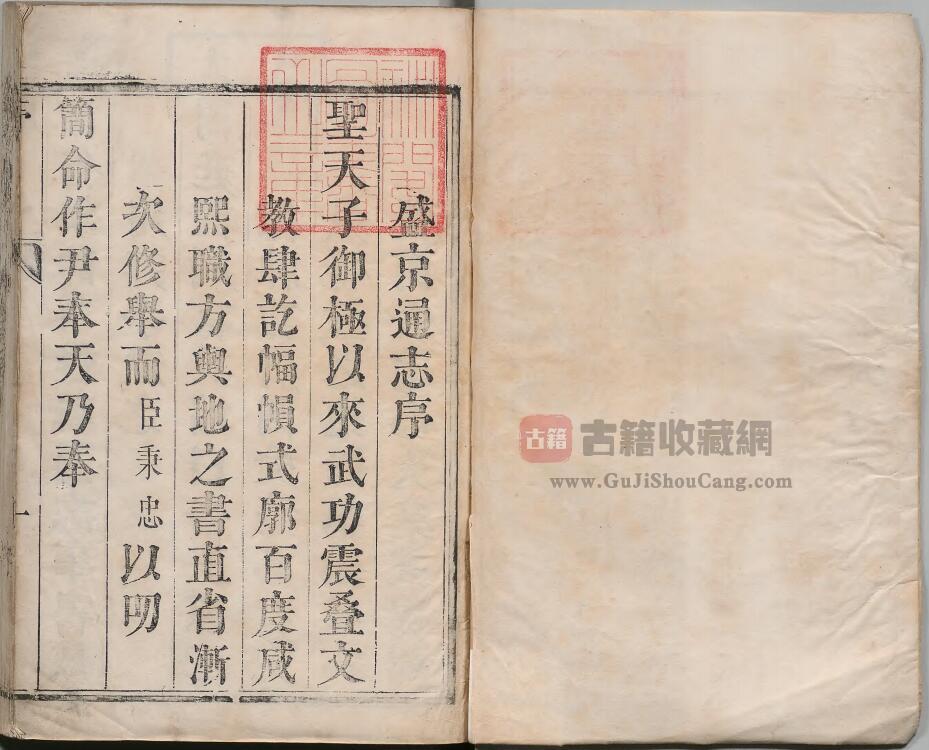 盛京通志序
聖天子御極以來武功震疊文
教肆訖幅幀式廓百度咸
熙職方輿地之書直省漸
次修舉而臣秉忠以叨
簡命作尹奉天乃奉
一
古籍 古籍收藏網
www.GuJiShouCang.com